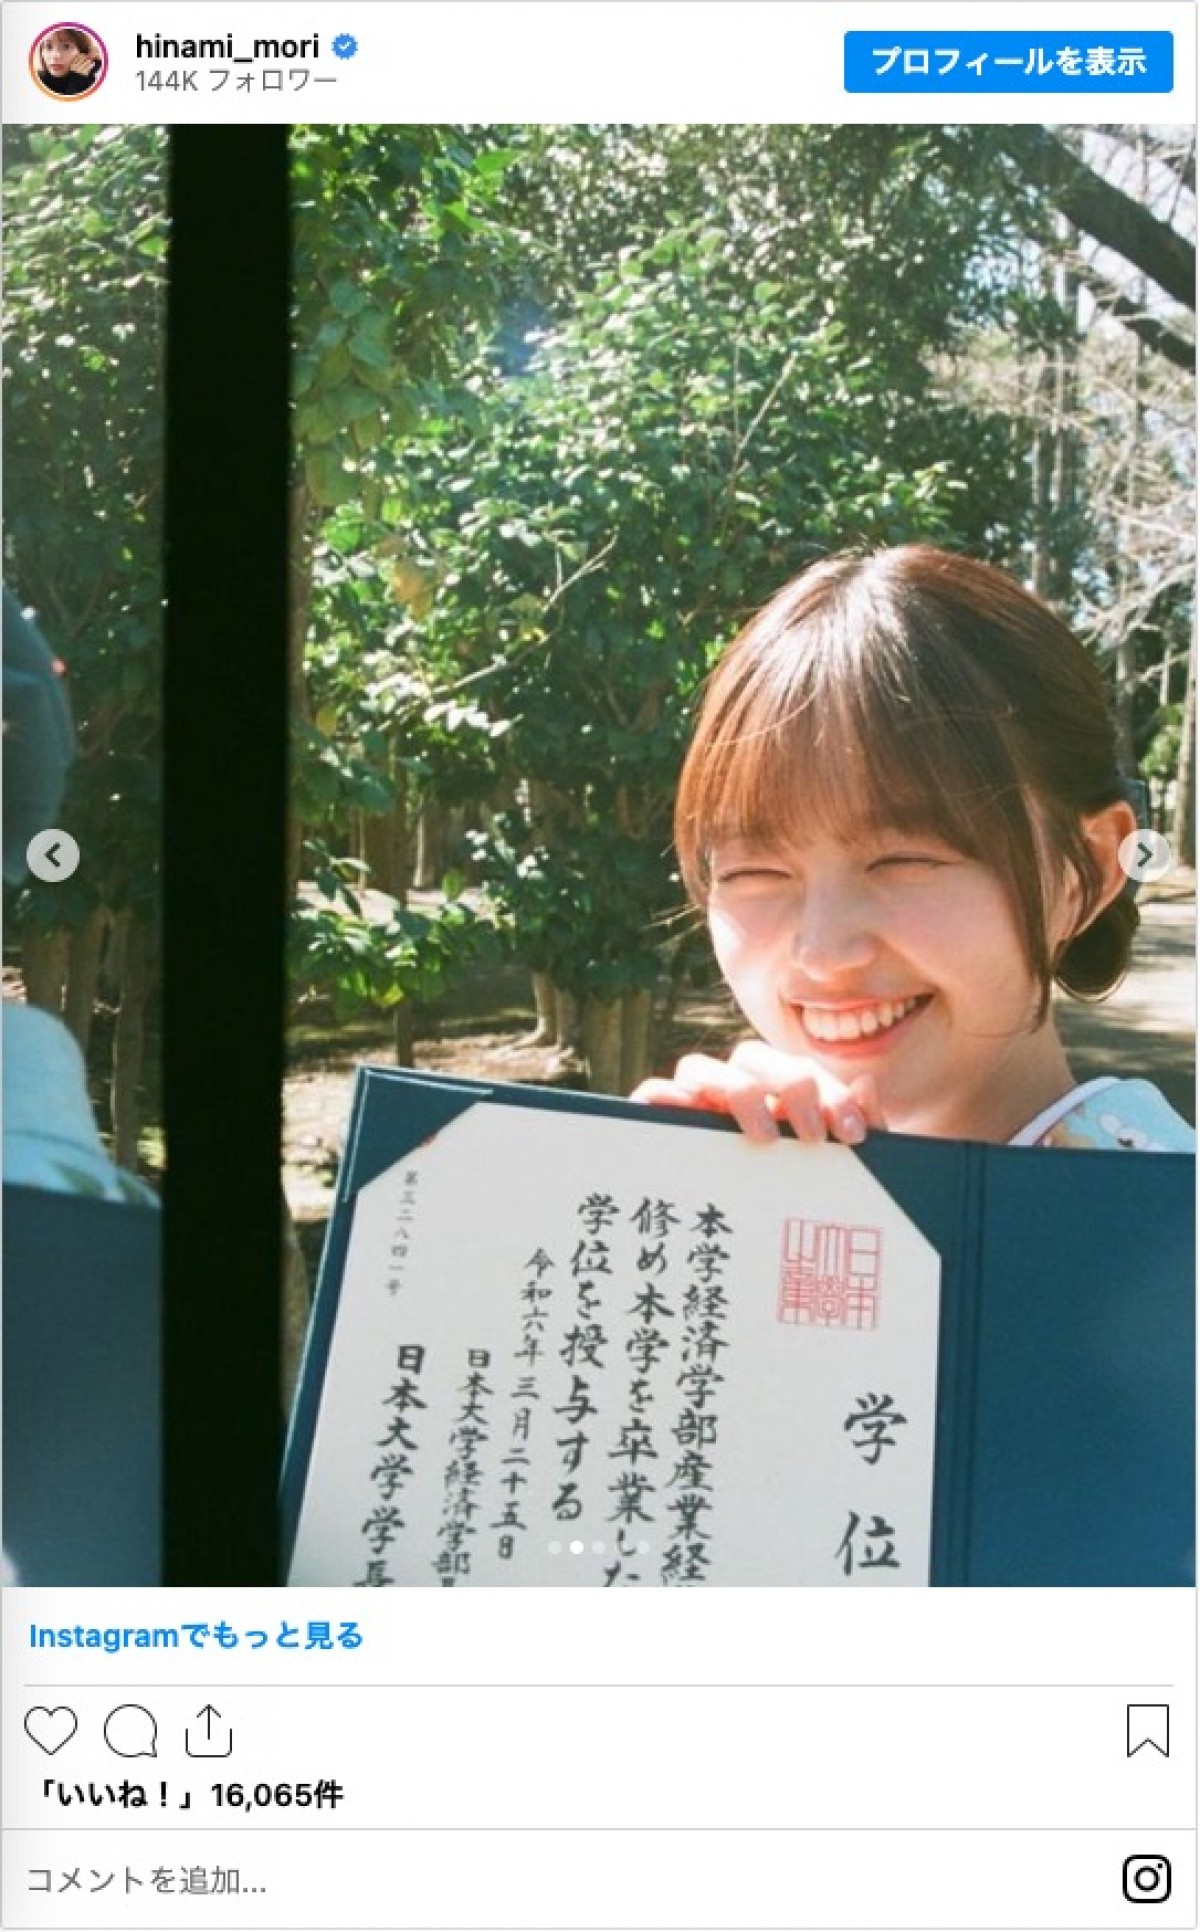 hinami_mori
144K フォロワー
プロフィールを表示
日本
大學
之東
学位
本学経済学部産業経
修め本学を卒業した
学位を授与する
令和六年三月二十五日
日本大学経済学部
日本大学学長
第三二八四一号
Instagramでもっと見る
「いいね！」16,065件
コメントを追加...